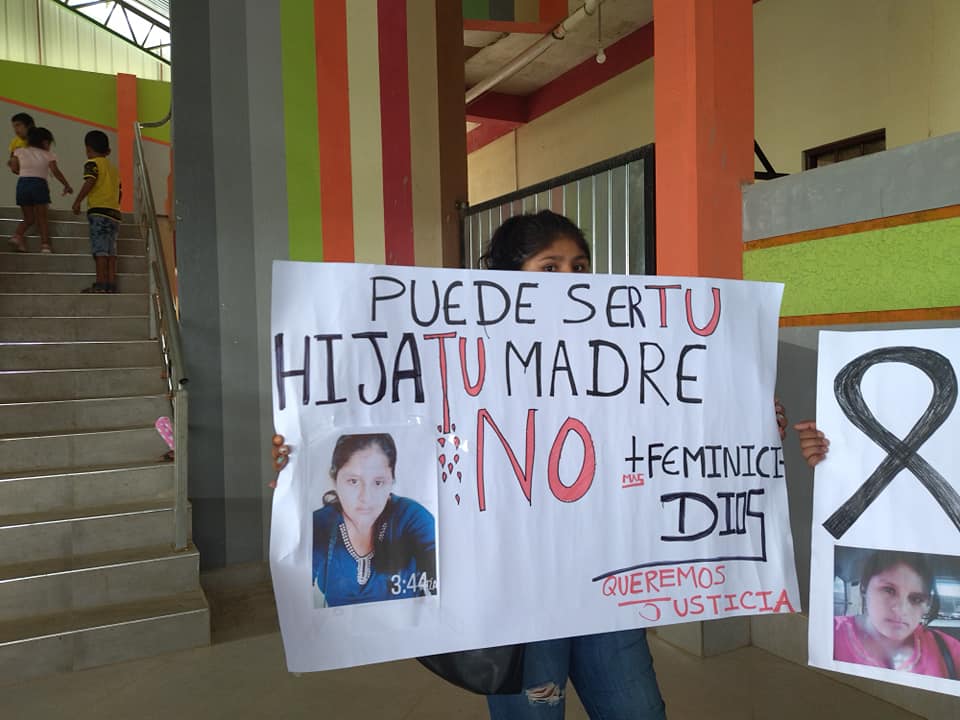 PUEDE SER TU
HIJA TU MADRE
NO
+ FEMINICI-
MAS
DIOS
QUEREMOS
JUSTICIA
3:44